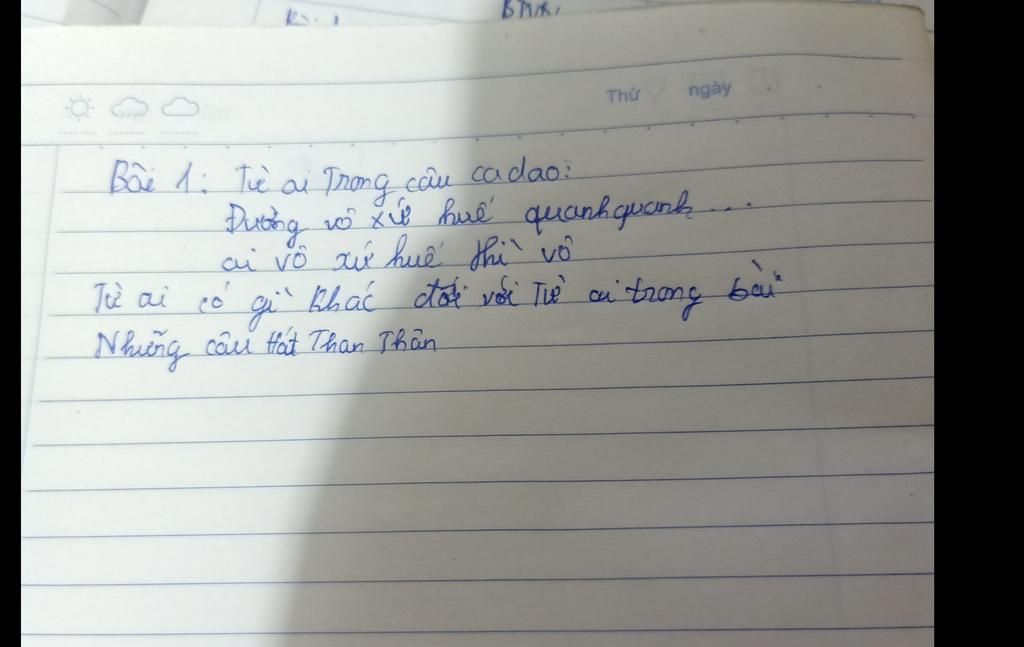 Thứ ngày
Bài 1: Từ ai Trong câu ca dao:
Đường vô xứ huế quanh quanh...
ai vô xứ huế thì vô
Từ ai có gì khác đối với Từ ai trong bài
Những câu Hát Than Thân